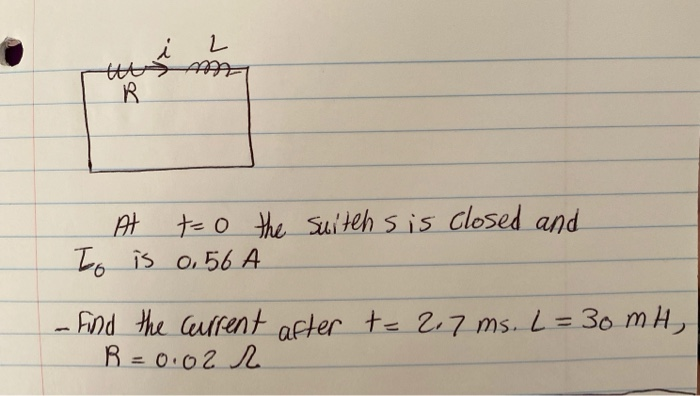 i L
R
At t=0 the suiteh s is closed and
I₀ is 0.56 A
- Find the current after t= 2.7 ms. L = 30 mH,
R = 0.02 Ω